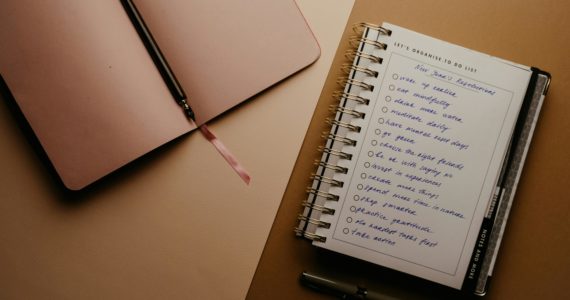 LET'S ORGANISE TO DO LIST
New Year's Resolutions
wake up earlier
eat mindfully
drink more water
meditate daily
have muted light days
go green
choose the right friends
be ok with saying no
invest in experiences
create more things
spend more time in nature
shop smarter
practice gratitude
do hardest tasks first
take action
NOTES AND MORE